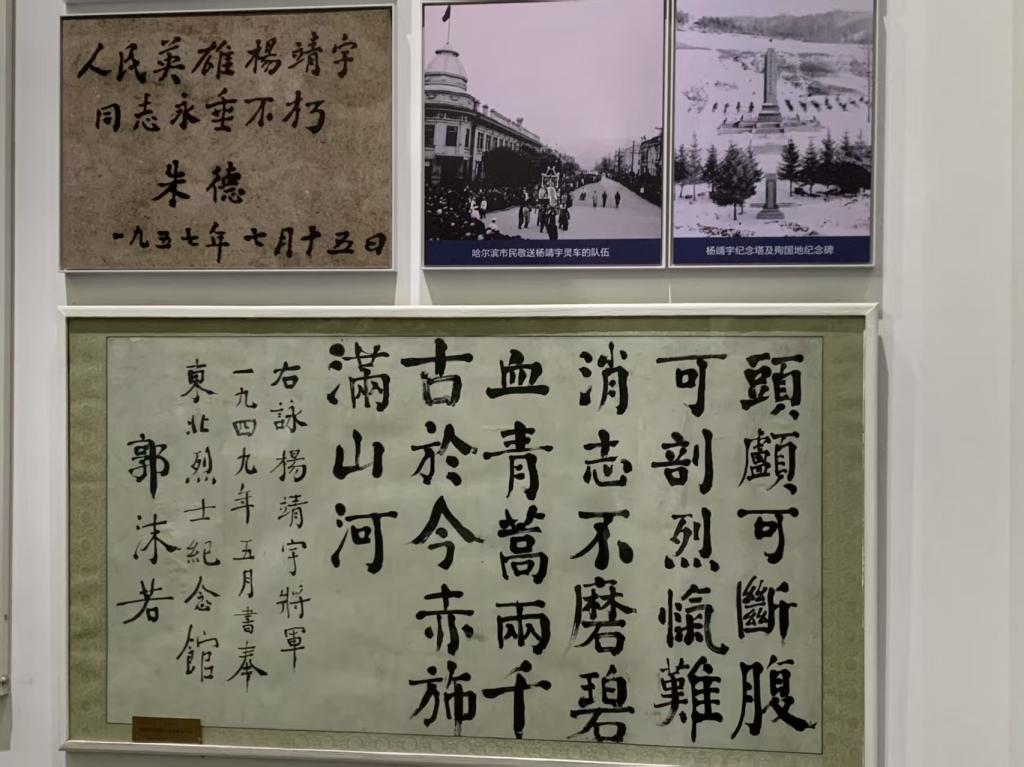 人民英雄楊靖宇
同志永垂不朽
朱德
一九五七年七月十五日
哈尔滨市民敬送杨靖宇灵车的队伍
杨靖宇纪念塔及殉国地纪念碑
頭顱可斷腹
可剖烈愾難
消志不磨碧
血青蒿兩千
古於今赤旆
滿山河
右詠楊靖宇將軍
一九四九年五月書奉
東北烈士紀念館
郭沫若